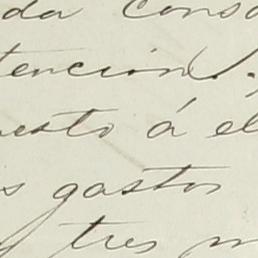 da conso
tencion
uesto á el
s gastos
y tres m